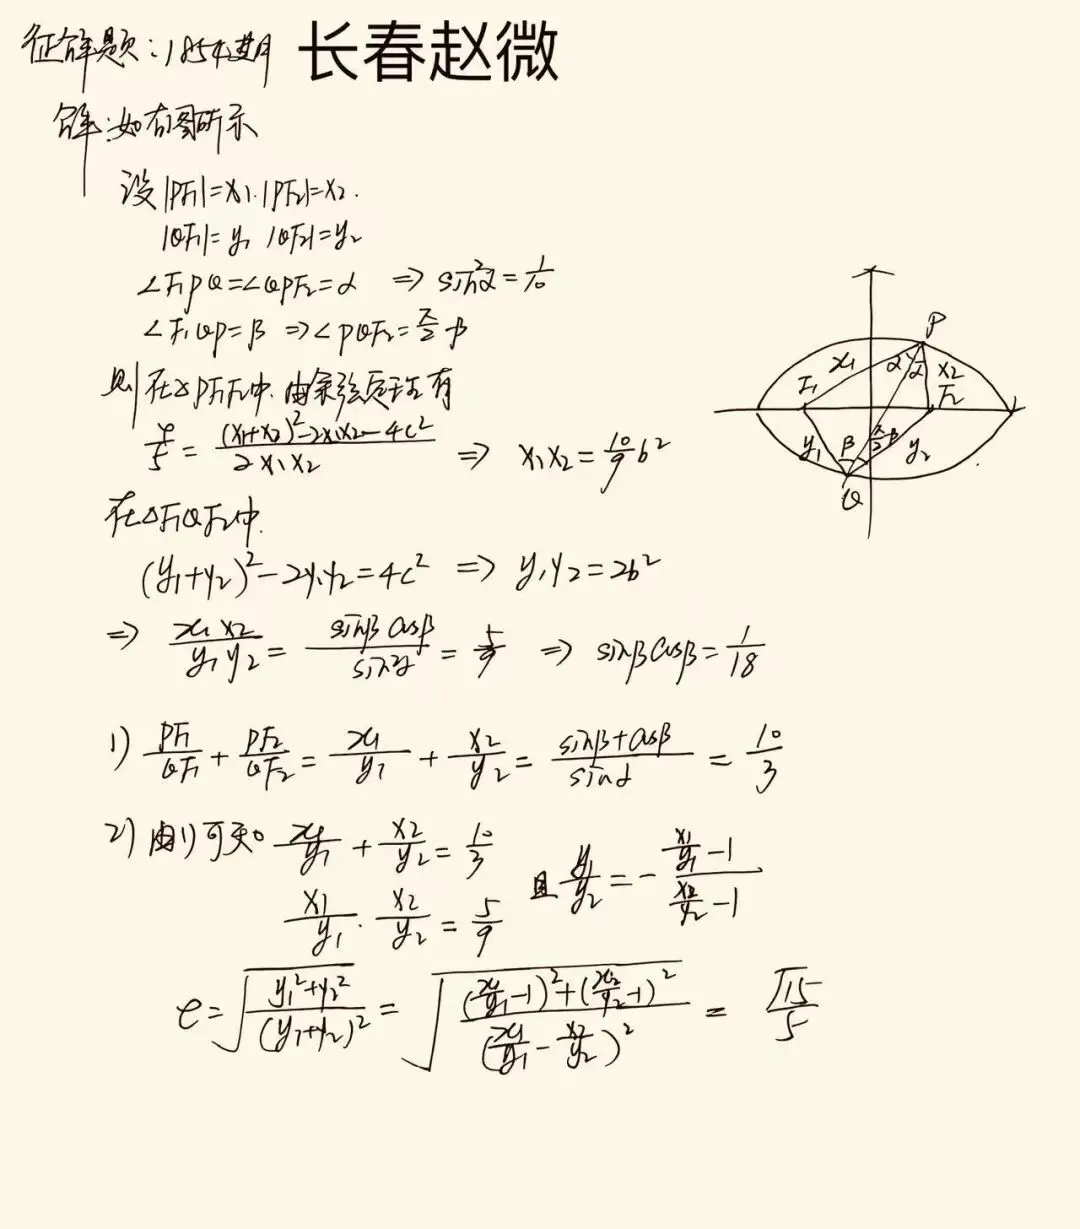 征解题:1854期 长春赵微
解:如右图所示
设|PF₁|=x₁.|PF₂|=x₂.
|QF₁|=y₁ |QF₂|=y₂
∠F₁PQ=∠QPF₂=α ⇒ sin²α=1/10
∠F₁QP=β ⇒∠PQF₂=π/2-β
则在△PF₁F₂中.由余弦定理有
4/5=((x₁+x₂)²-2x₁x₂-4c²)/(2x₁x₂) ⇒ x₁x₂=10/9 b²
在△F₁QF₂中.
(y₁+y₂)²-2y₁y₂=4c² ⇒ y₁y₂=2b²
⇒ (x₁x₂)/(y₁y₂)=(sinβcosβ)/(sin²α)=5/9 ⇒ sinβcosβ=1/18
1) PF₁/QF₁+PF₂/QF₂=x₁/y₁+x₂/y₂=(sinβ+cosβ)/sinα=10/3
2) 由1)可知 x₁/y₁+x₂/y₂=10/3
x₁/y₁·x₂/y₂=5/9
且 y₁/y₂=-(x₁/y₁-1)/(x₂/y₂-1)
e=√((y₁²+y₂²)/(y₁+y₂)²)=√(((x₁/y₁-1)²+(x₂/y₂-1)²)/(x₁/y₁-x₂/y₂)²)=√15/5
P
x₁
α
α
x₂
F₁
F₂
y₁
β
π/2-β
y₂
Q